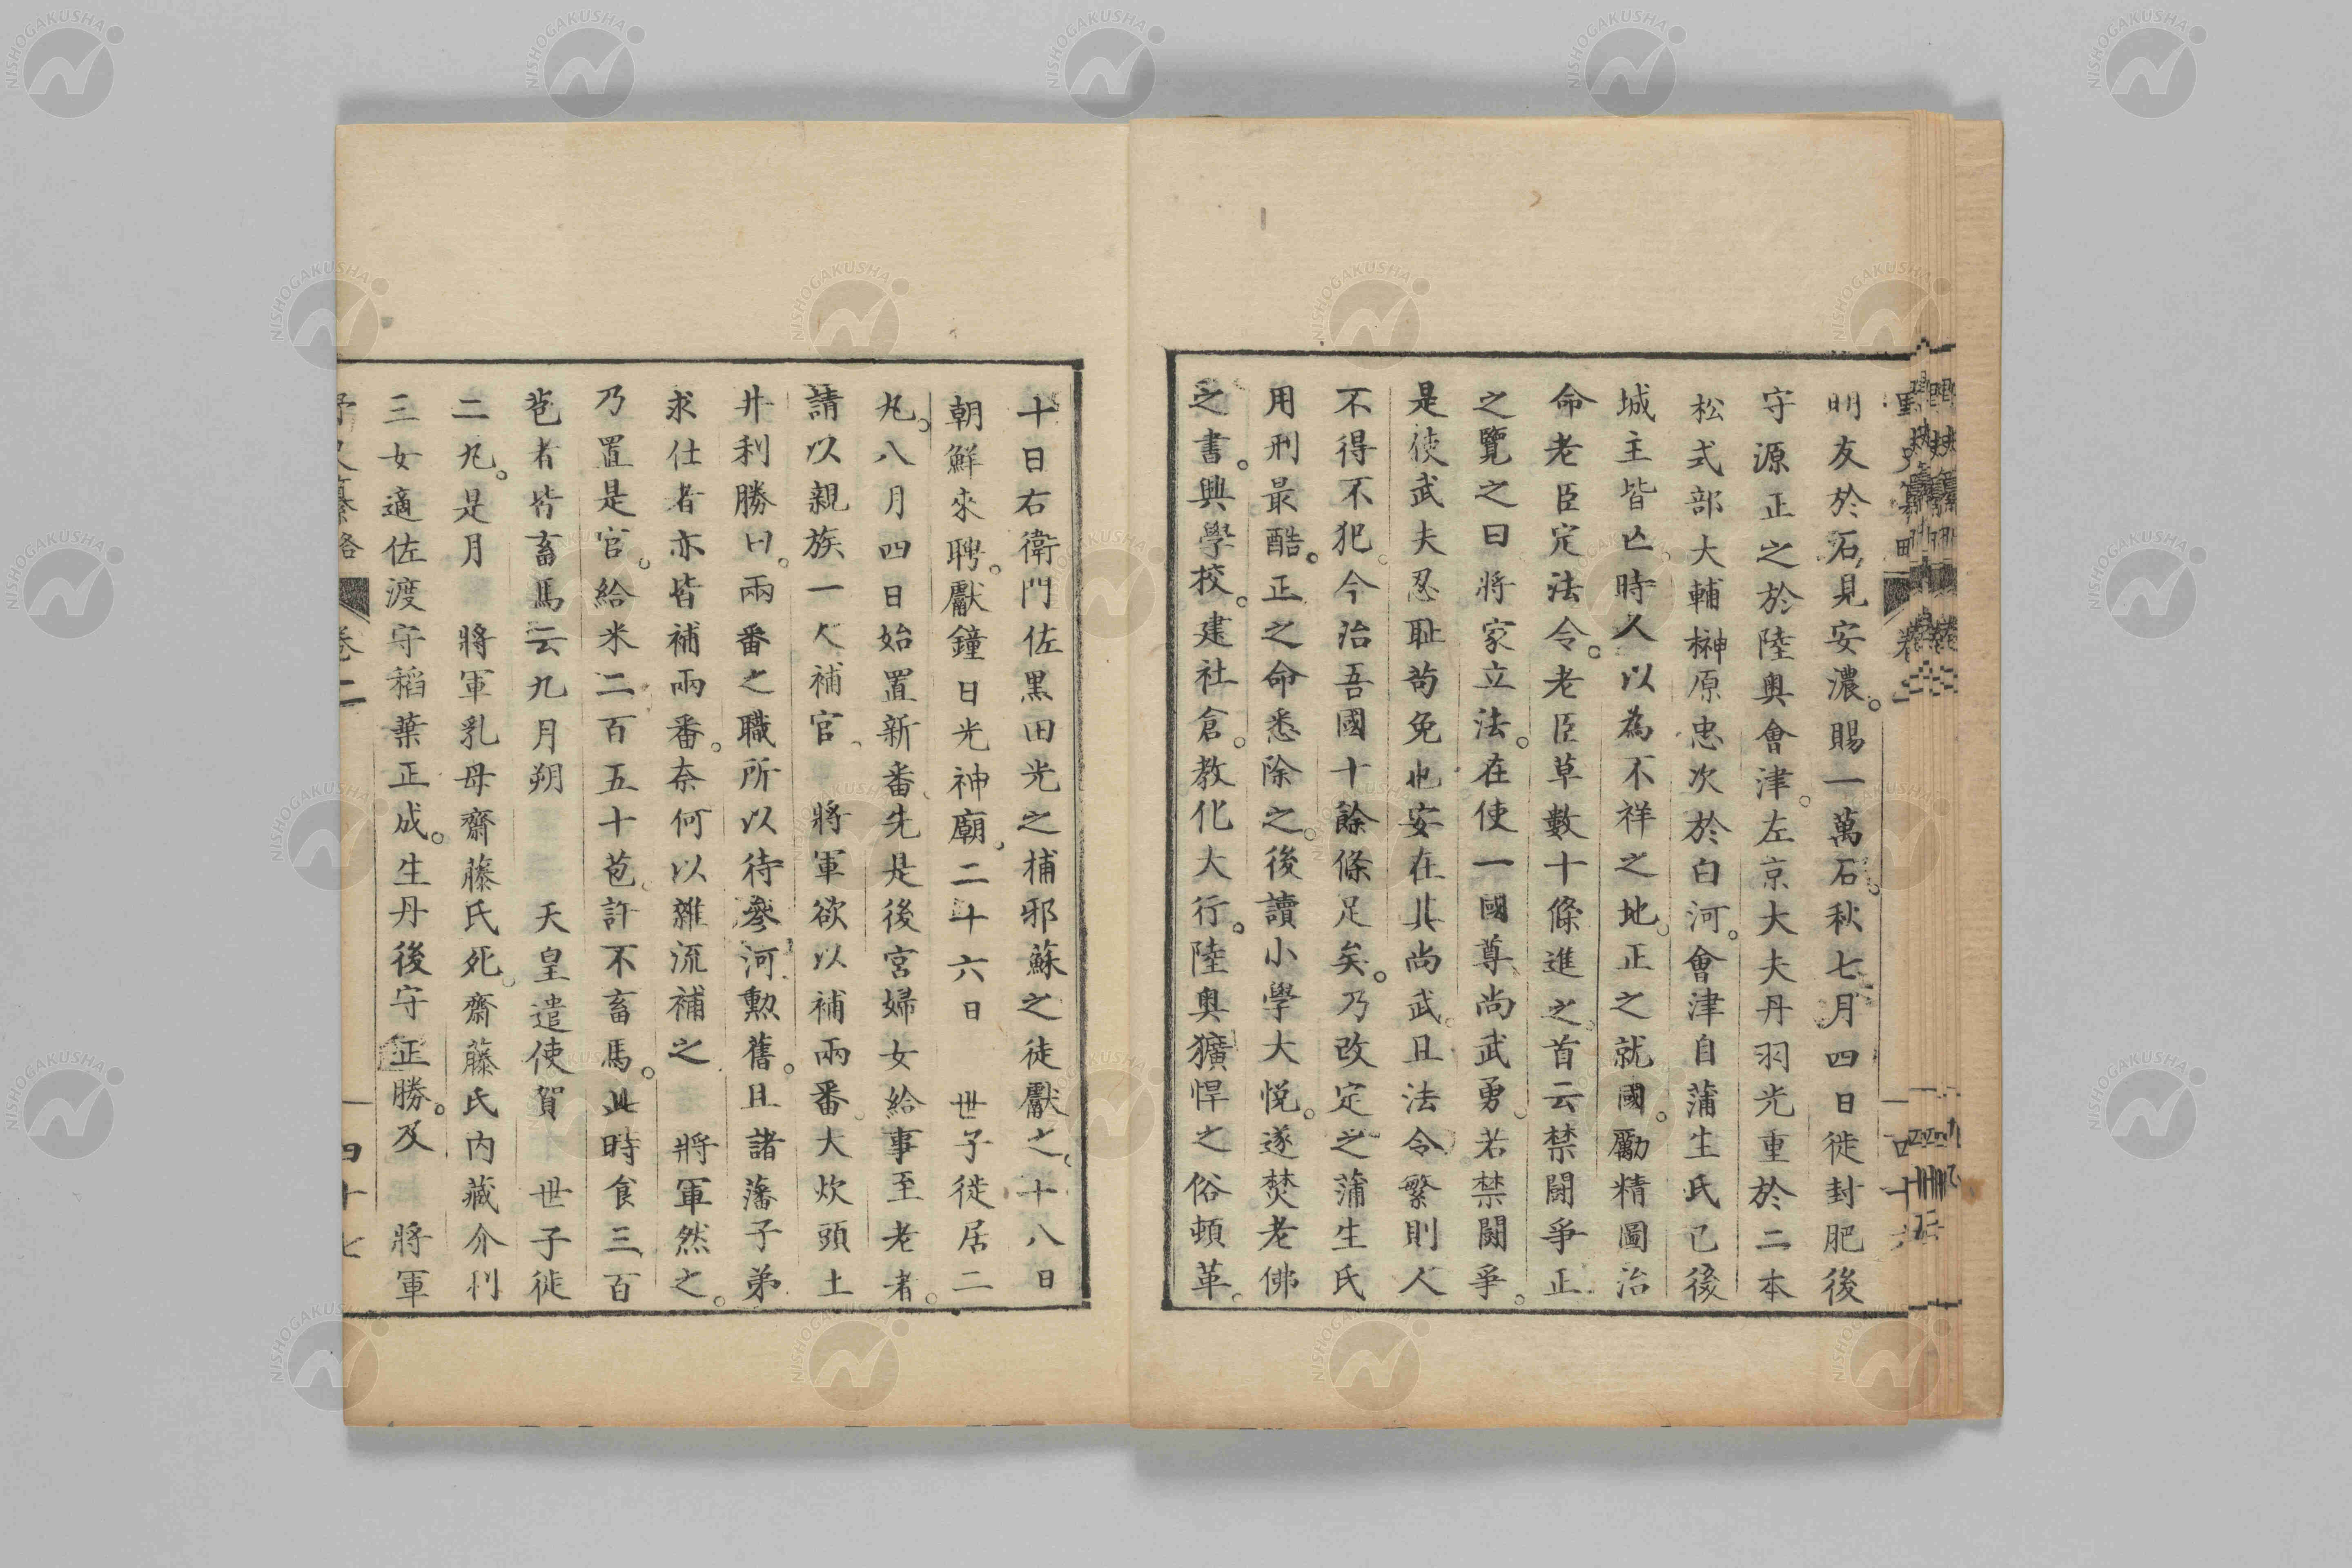 明友於石見安濃。賜一萬石。秋七月四日徙封肥後
守源正之於陸奥會津。左京大夫丹羽光重於二本
松式部大輔榊原忠次於白河。會津自蒲生氏已後
城主皆亡。時人以為不祥之地。正之就國。勵精圖治
命老臣定法令。老臣草數十條進之。首云禁鬪爭正
之覽之曰將家立法。在使一國尊尚武勇。若禁鬪爭。
是使武夫忍耻苟免也安在其尚武。且法令繁則人
不得不犯。今治吾國十餘條足矣。乃改定之蒲生氏
用刑最酷。正之命悉除之。後讀小學大悦。遂焚老佛
之書。興學校。建社倉。教化大行。陸奥獷悍之俗頓革。
十日右衛門佐黒田光之捕邪蘇之徒獻之。十八日
朝鮮來聘。獻鐘日光神廟。二十六日 世子徙居二
丸。八月四日始置新番。先是後宮婦女給事至老者。
請以親族一人補官。 將軍欲以補兩番。大炊頭土
井利勝曰。兩番之職所以待參河勲舊。且諸藩子弟
求仕者亦皆補兩番。奈何以雜流補之 將軍然之。
乃置是官。給米二百五十苞。許不畜馬。此時食三百
苞者皆畜馬云九月朔 天皇遣使賀 世子徙
二丸。是月 將軍乳母齋藤氏死。齋藤氏内藏介利
三女適佐渡守稻葉正成。生丹後守正勝。及 將軍
卷二
四十七
NISHOGAKUSHA